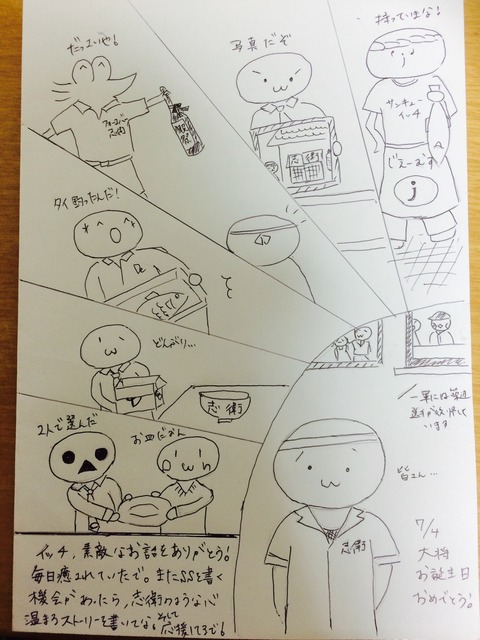 だっまいや!
写真だぞ
持っていきな!
サンキュー
イッチ
じえーむす
j
志衛
タイ釣ったんだ!
どんがり…
志衛
2人で選んだ
お皿だおん
皆さん…
志衛
7/4
大将
お誕生日
おめでとう!
イッチ、素敵なお話をありがとう!
毎日癒されていたで。またSSを書く
機会があったら、志衛のような心
温まるストーリーを書いてな。そして
応援してるで!